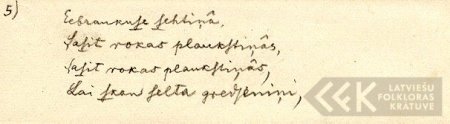 5)
Eebraukuse sehtiņâ,
Sasit rokas plaukstiņâs,
sasit rokas plaukstiņâs,
Lai skan selta gredseniņi,
LATVIEŠU
FOLKLORAS
KRATUVE